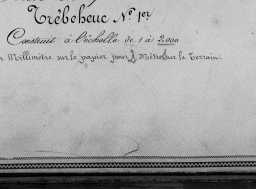 Trêboheuc Nº 1er
Construit à l'échelle de 1 à 2000
Millimètre sur le papier pour 2 Mètres sur le Terrain.